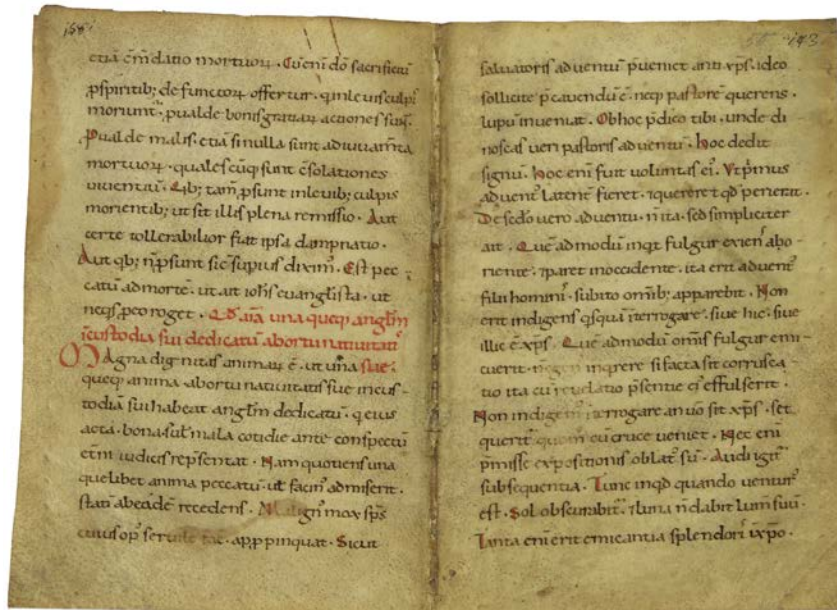 etiā ēm̄datio mortuoꝝ. Cū eni dō sacrificiū
ꝓ spiritib; defunctoꝝ offertur. q̇ in leuis culpis
moriunt᷑. ꝓ ualde bonis gratiaꝝ actiones sunt.
Ꝓ ualde malis. etiā si nulla sunt adiuuam̄ta
mortuoꝝ. quales cūq; sunt c̄solationes
uiuentiū. Qib; tam̄ ꝓsunt in leuib; culpis
morientib; ut sit illis plena remissio. Aut
certe tollerabilior fiat ipsa dampnatio.
Aut qb; n̄ ꝓsunt sic̄ supius dixim᷒. Est pec-
catū ad morte. ut ait ioh̄s euanglista. ut
neq̇s ꝓ eo roget. Qd̄ aīa una queq; anglm̄
ī custodia sui dedicatū ab ortu natiuitati᷒
Magna dignitas animaꝝ ē. ut una
queq; anima ab ortu natiuitatis sue in cus-
todiā sui habeat anglm̄ dedicatū. q eius
acta. bona. sul mala cotidie ante conspectū
et̄ni iudicis rep̄sentat. Nam quotiens una
que libet anima peccatū. ul facin᷒ admiserit.
statī ab eadē recedens. Malign᷒ mox sp̄s
cuius op᷒ seruile fac. apꝓpinquat. Sicut
saluatoris aduentū p̄ueniet anti xp̄s. ideo
sollicite p̄cauendū ē. neq; pastorē querens.
lupū inueniat. Ob hoc p̄dico tibi. unde di-
noscas ueri pastoris aduentū. hoc dedit
signū. hoc eni fuit uoluntas ei᷒. Ut p̄mus
aduent᷒ latent᷑ fieret. ⁊ quereret qd̄ perierit.
De sc̄do uero aduentu. n̄ ita. sed simpliciter
ait. Quē ad modū inqt fulgur exien᷒ ab o-
riente. ⁊ paret in occidente. ita erit aduent᷒
filii homini᷒. subito om̄ib; apparebit. Non
erit indigens q̇squā īterrogare. siue hic. siue
illic ē xp̄s. Quē admodū om̄is fulgur emi-
cuerit. inqrere si facta sit corrusca-
tio ita cū reuelatio p̄sentie ei᷒ effulserit.
Non indigem᷒ īterrogare an uō sit xp̄s. set
querit᷑ quom̄ cū cruce ueniet. Nec eni
p̄misse expositionis oblat᷒ sū. Audi igit᷑
subsequentia. Tunc inqd quando uentur᷒
est. Sol obscurabit᷑. ⁊ luna n̄ dabit lum̄ suū.
Tanta eni erit emicantia splendori᷒ ī xp̄o.